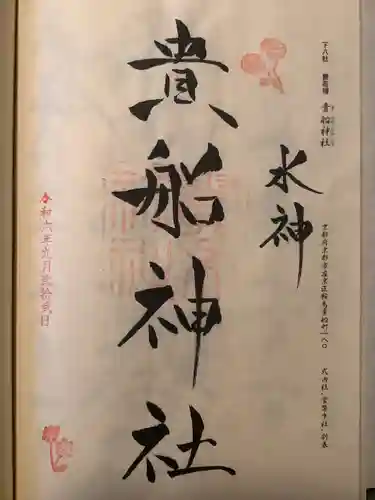 貴船神社
水神
貴船神社
京都府京都市左京区鞍馬貴船町一八〇
式内社・官幣中社・別表
令和六年九月弐拾弐日